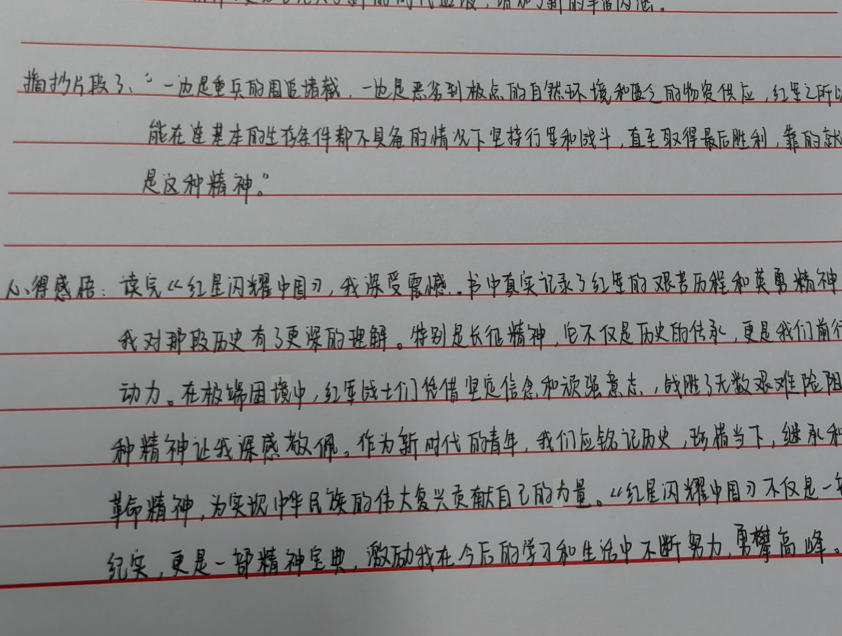 摘抄片段3、“一边是重兵的围追堵截，一边是恶劣到极点的自然环境和匮乏的物资供应，红军之所以
能在连基本的生存条件都不具备的情况下坚持行军和战斗，直至取得最后胜利，靠的就
是这种精神。”
心得感悟：读完《红星闪耀中国》，我深受震撼．书中真实记录了红军的艰苦历程和英勇精神
我对那段历史有了更深的理解。特别是长征精神，它不仅是历史的传承，更是我们前行
动力。在极端困境中，红军战士们凭借坚定信念和顽强意志，战胜了无数艰难险阻
种精神让我深感敬佩。作为新时代的青年，我们应铭记历史，珍惜当下，继承和
革命精神，为实现中华民族的伟大复兴贡献自己的力量。《红星闪耀中国》不仅是一
纪实，更是一部精神宝典，激励我在今后的学习和生活中不断努力，勇攀高峰。